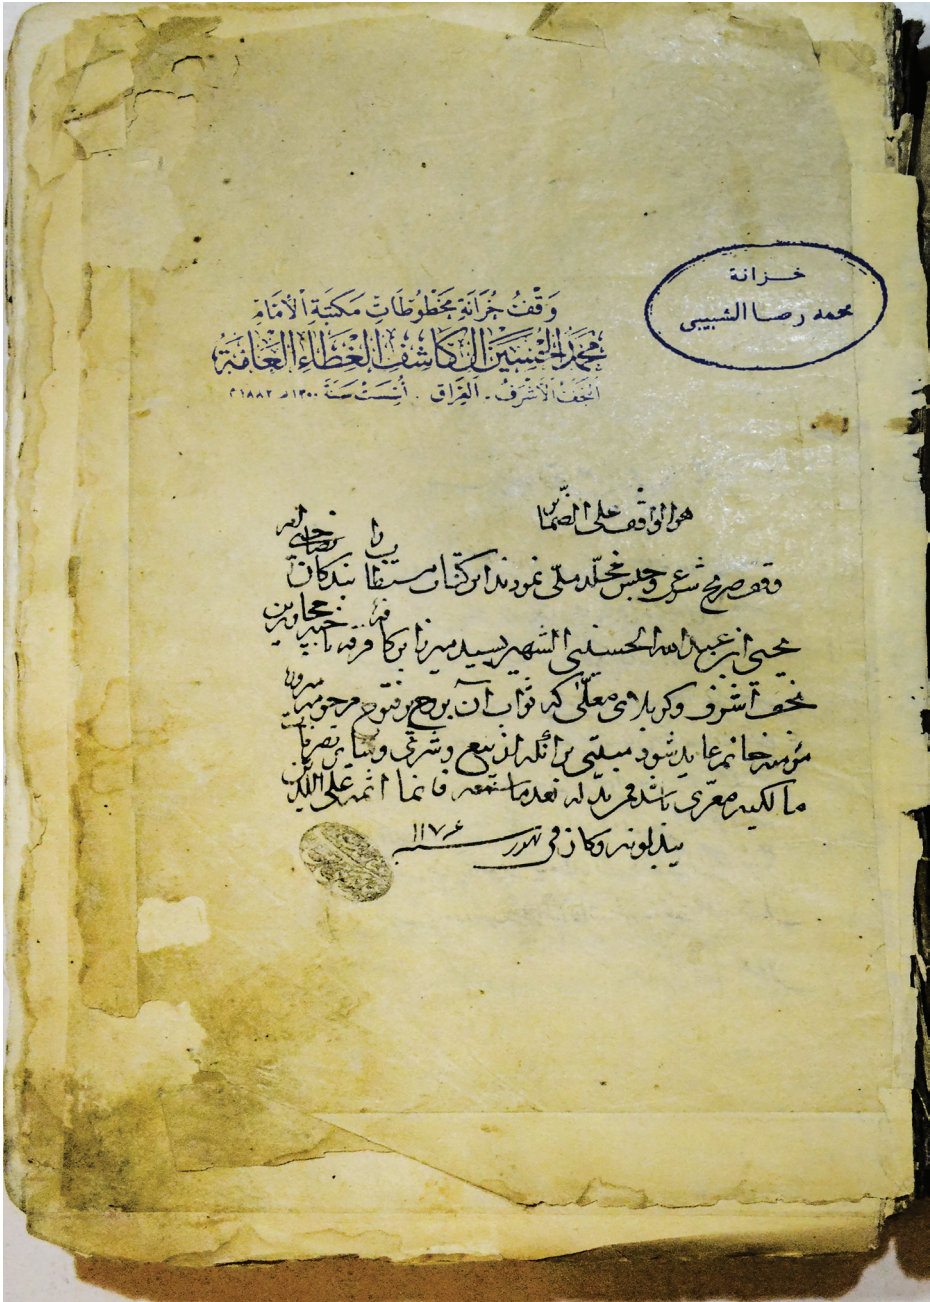 خزانة
محمد رضا الشبيبي
وَقْفُ خِزَانَةِ مَخْطُوطَاتِ مَكْتَبَةِ الْإِمَامِ
مُحَمَّد الْحُسَيْن آل كَاشِف الْغِطَاء الْعَامَّة
النَّجَفُ الْأَشْرَفُ - الْعِرَاق . أُسِّسَتْ سَنَةَ ١٣٠٠هـ ١٨٨٢م
هو الواقف على الضمائر
وقف صحيح شرعى وحبس مخلد ملى نمودند اين كتاب مستطاب را بندگان
يحيى ابن عبد الله الحسينى الشهير بسيد ميرزا بر كافه مجاورين
نجف اشرف وكربلاى معلى كه ثواب آن بروح پرفتوح مرحومه
مؤمنه خانم عايد شود مبتنى بر آنكه از بيع وشرى وساير تصرفات
مالكيه معرى باشد فمن بدله بعد ما سمعه فانما اثمه على الذين
يبدلونه وكان فى شهور سنه ١١٧٤